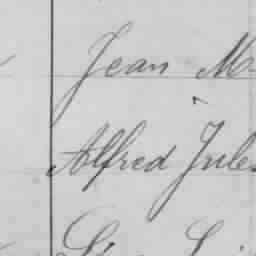 Jean M
Alfred Jules